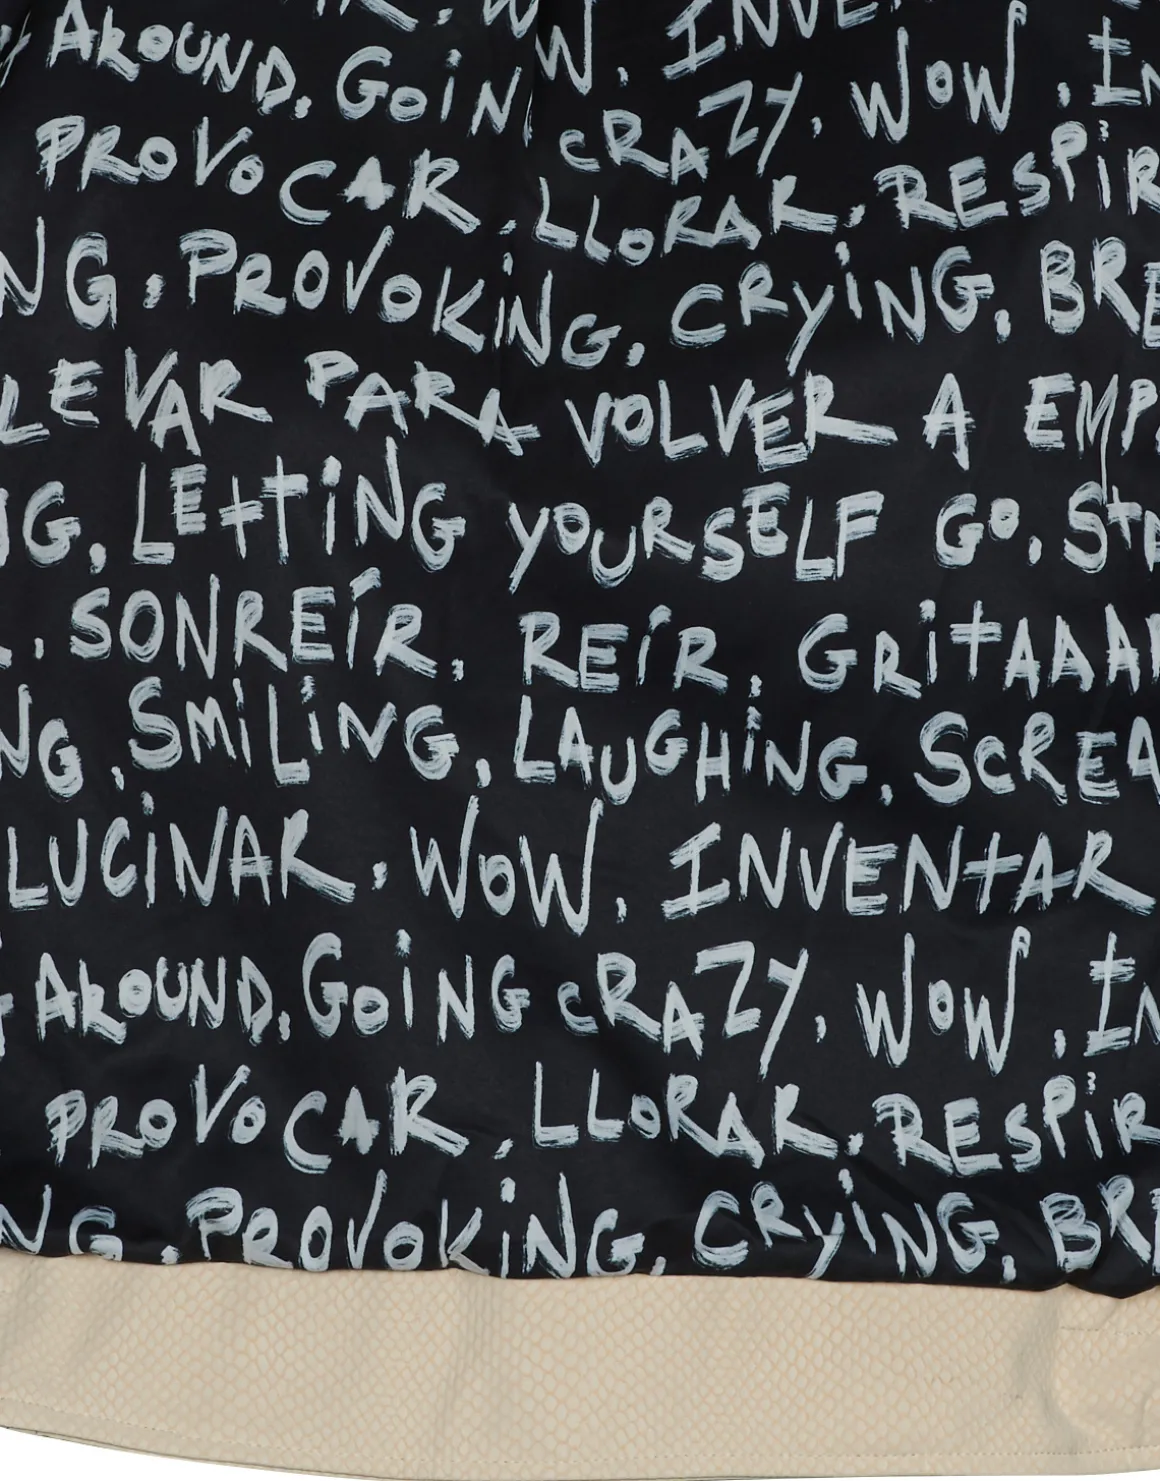 AROUND, GOIN CRAZY, WOW, IN
PROVOCAR, LLORAR, RESPIR
NG, PROVOKING, CRYING, BRE
LEVAR PARA VOLVER A EMP
NG, LETTING YOURSELF GO, STA
R, SONREÍR, REÍR, GRITAAAA
NG, SMILING, LAUGHING, SCREA
LUCINAR, WOW, INVENTAR
AROUND, GOING CRAZY, WOW, IN
PROVOCAR, LLORAR, RESPIR
NG, PROVOKING, CRYING, BRE